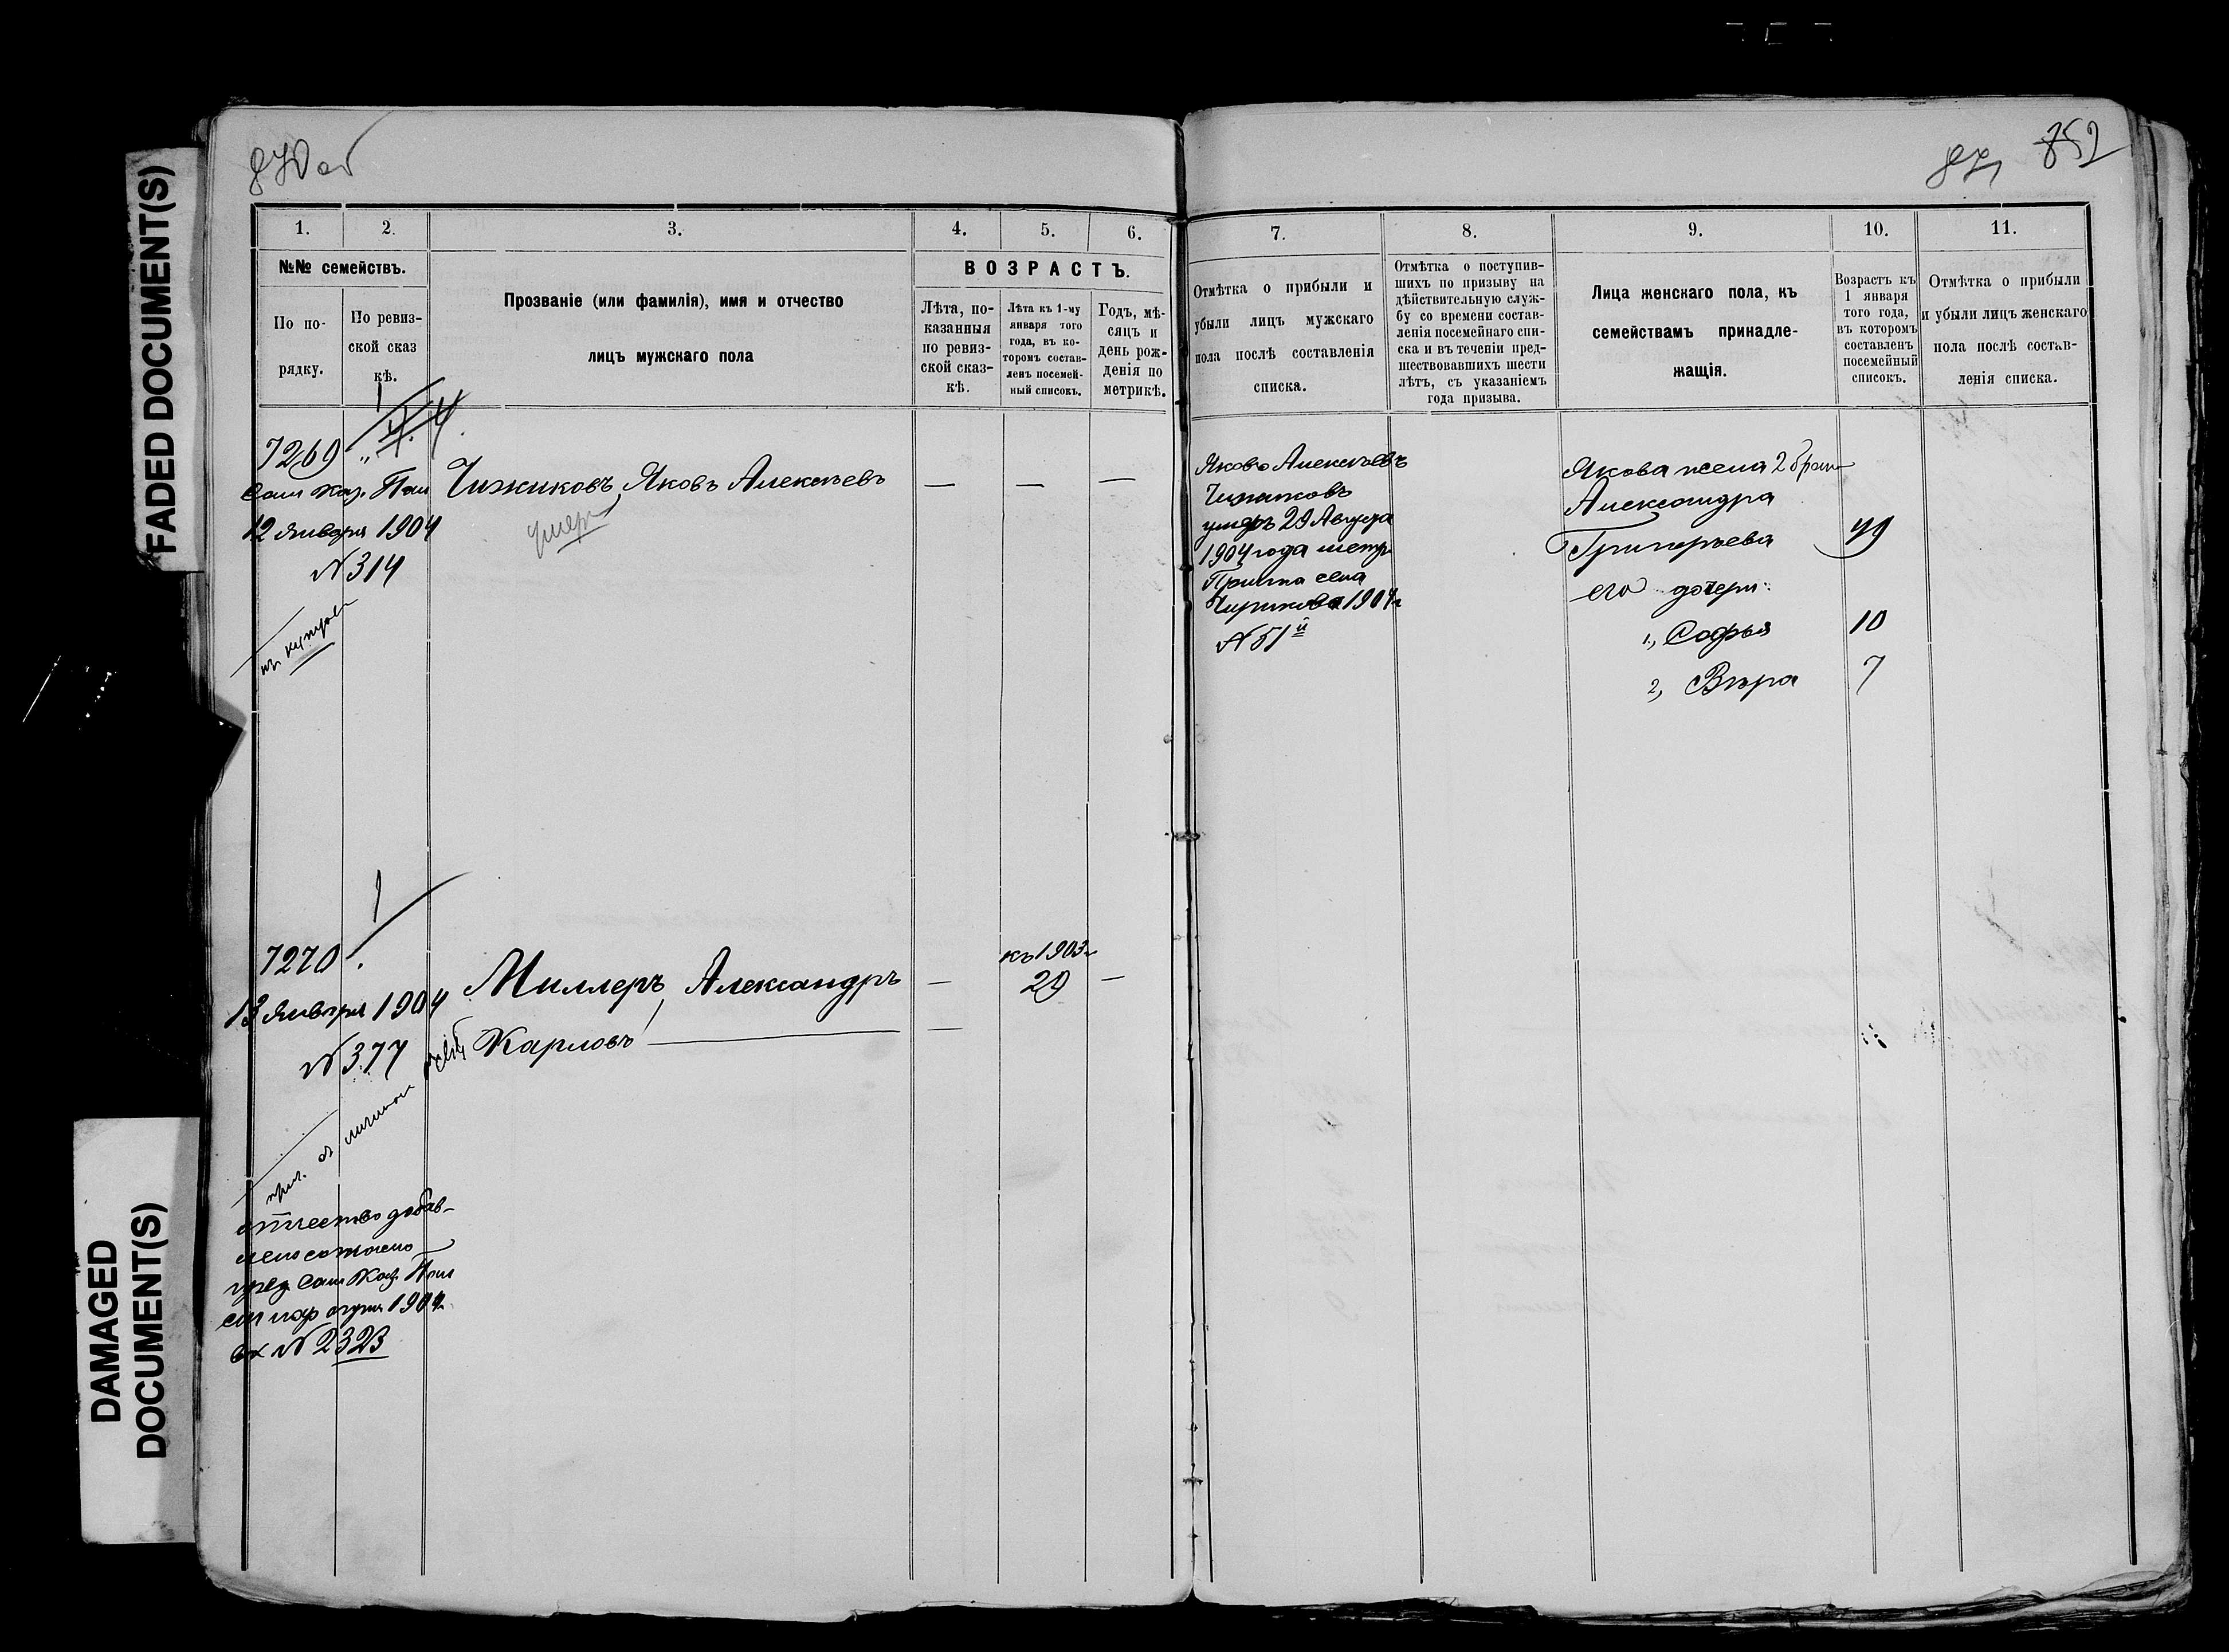 FADED DOCUMENT(S)
DAMAGED
DOCUMENT(S)
870 об
852
1.
2.
3.
4.
5.
6.
№№ семействъ.
По по-
рядку.
По ревиз-
ской сказ
кѣ.
Прозваніе (или фамилія), имя и отчество
лицъ мужскаго пола
ВОЗРАСТЪ.
Лѣта, по-
казанныя
по ревиз-
ской сказ-
кѣ.
Лѣта къ 1-му
января того
года, въ ко-
торомъ состав-
ленъ посемей-
ный списокъ.
Годъ, мѣ-
сяцъ и
день рож-
денія по
метрикѣ.
7269
Сам Каз. Пал
12 Января 1904
№ 314
въ купцы
Чижиковъ, Яковъ Алексѣевъ
умеръ
— — —
7270
13 Января 1904
№ 377
отчество добав-
лено согласно
пред Сам Каз. Пал
1904
вх № 2323
Миллеръ, Александръ
Карловъ
—
къ 1903 г
29
—
7.
8.
9.
10.
11.
Отмѣтка о прибыли и
убыли лицъ мужскаго
пола послѣ составленія
списка.
Отмѣтка о поступив-
шихъ по призыву на
дѣйствительную служ-
бу со времени состав-
ленія посемейнаго спи-
ска и въ теченіи пред-
шествовавшихъ шести
лѣтъ, съ указаніемъ
года призыва.
Лица женскаго пола, къ
семействамъ принадле-
жащія.
Возрастъ къ
1 января
того года,
въ которомъ
составленъ
посемейный
списокъ.
Отмѣтка о прибыли
и убыли лицъ женскаго
пола послѣ состав-
ленія списка.
Яковъ Алексѣевъ
Чижиковъ
умеръ 29 Августа
1904 года метр
Причта села
Чирикова 1904 г
№ 51й
Якова жена 2 брака
Александра
Григорьева 49
его дочери:
1, Софья 10
2, Вѣра 7